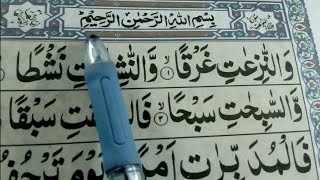 بِسْمِ اللّٰهِ الرَّحْمٰنِ الرَّحِيْمِ
وَالنّٰزِعٰتِ غَرْقًا ۙ﴿۱﴾ وَّالنّٰشِطٰتِ نَشْطًا
وَّالسّٰبِحٰتِ سَبْحًا ۙ﴿۳﴾ فَالسّٰبِقٰتِ سَبْقًا
فَالْمُدَبِّرٰتِ اَمْرًا يَوْمَ تَرْجُفُ